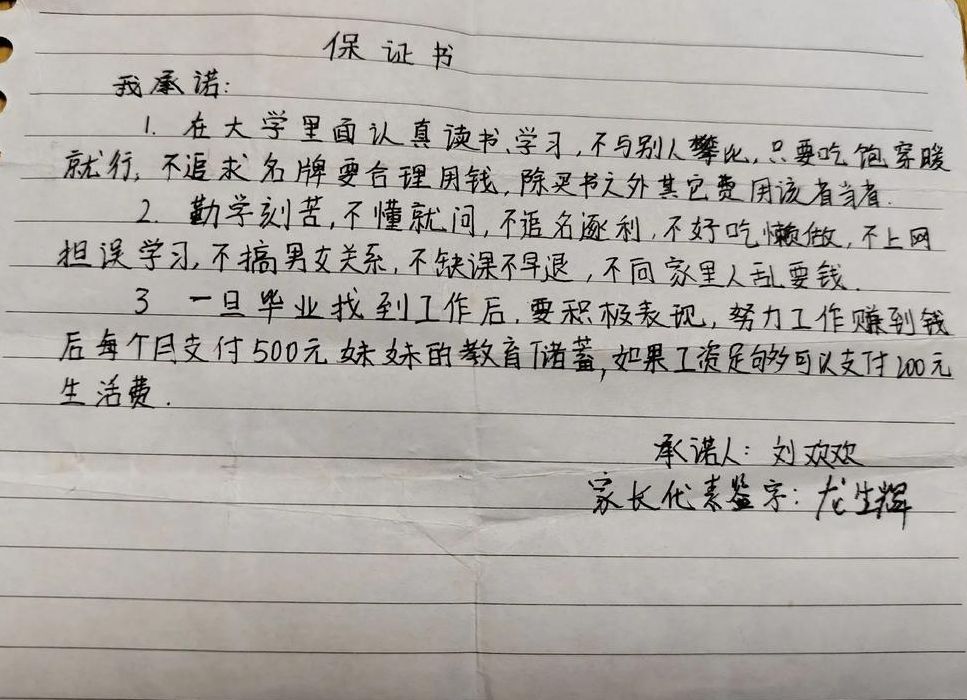 保证书
我承诺:
1. 在大学里面认真读书、学习，不与别人攀比，只要吃饱穿暖
就行，不追求名牌要合理用钱，除买书之外其它费用该省当省.
2. 勤学刻苦，不懂就问，不追名逐利，不好吃懒做，不上网
担误学习，不搞男女关系，不缺课不早退，不向家里人乱要钱.
3 一旦毕业找到工作后，要积极表现，努力工作赚到钱
后每个月支付500元妹妹的教育储蓄，如果工资足够可以支付200元
生活费.
承诺人: 刘欢欢
家长代表签字: 龙生辉